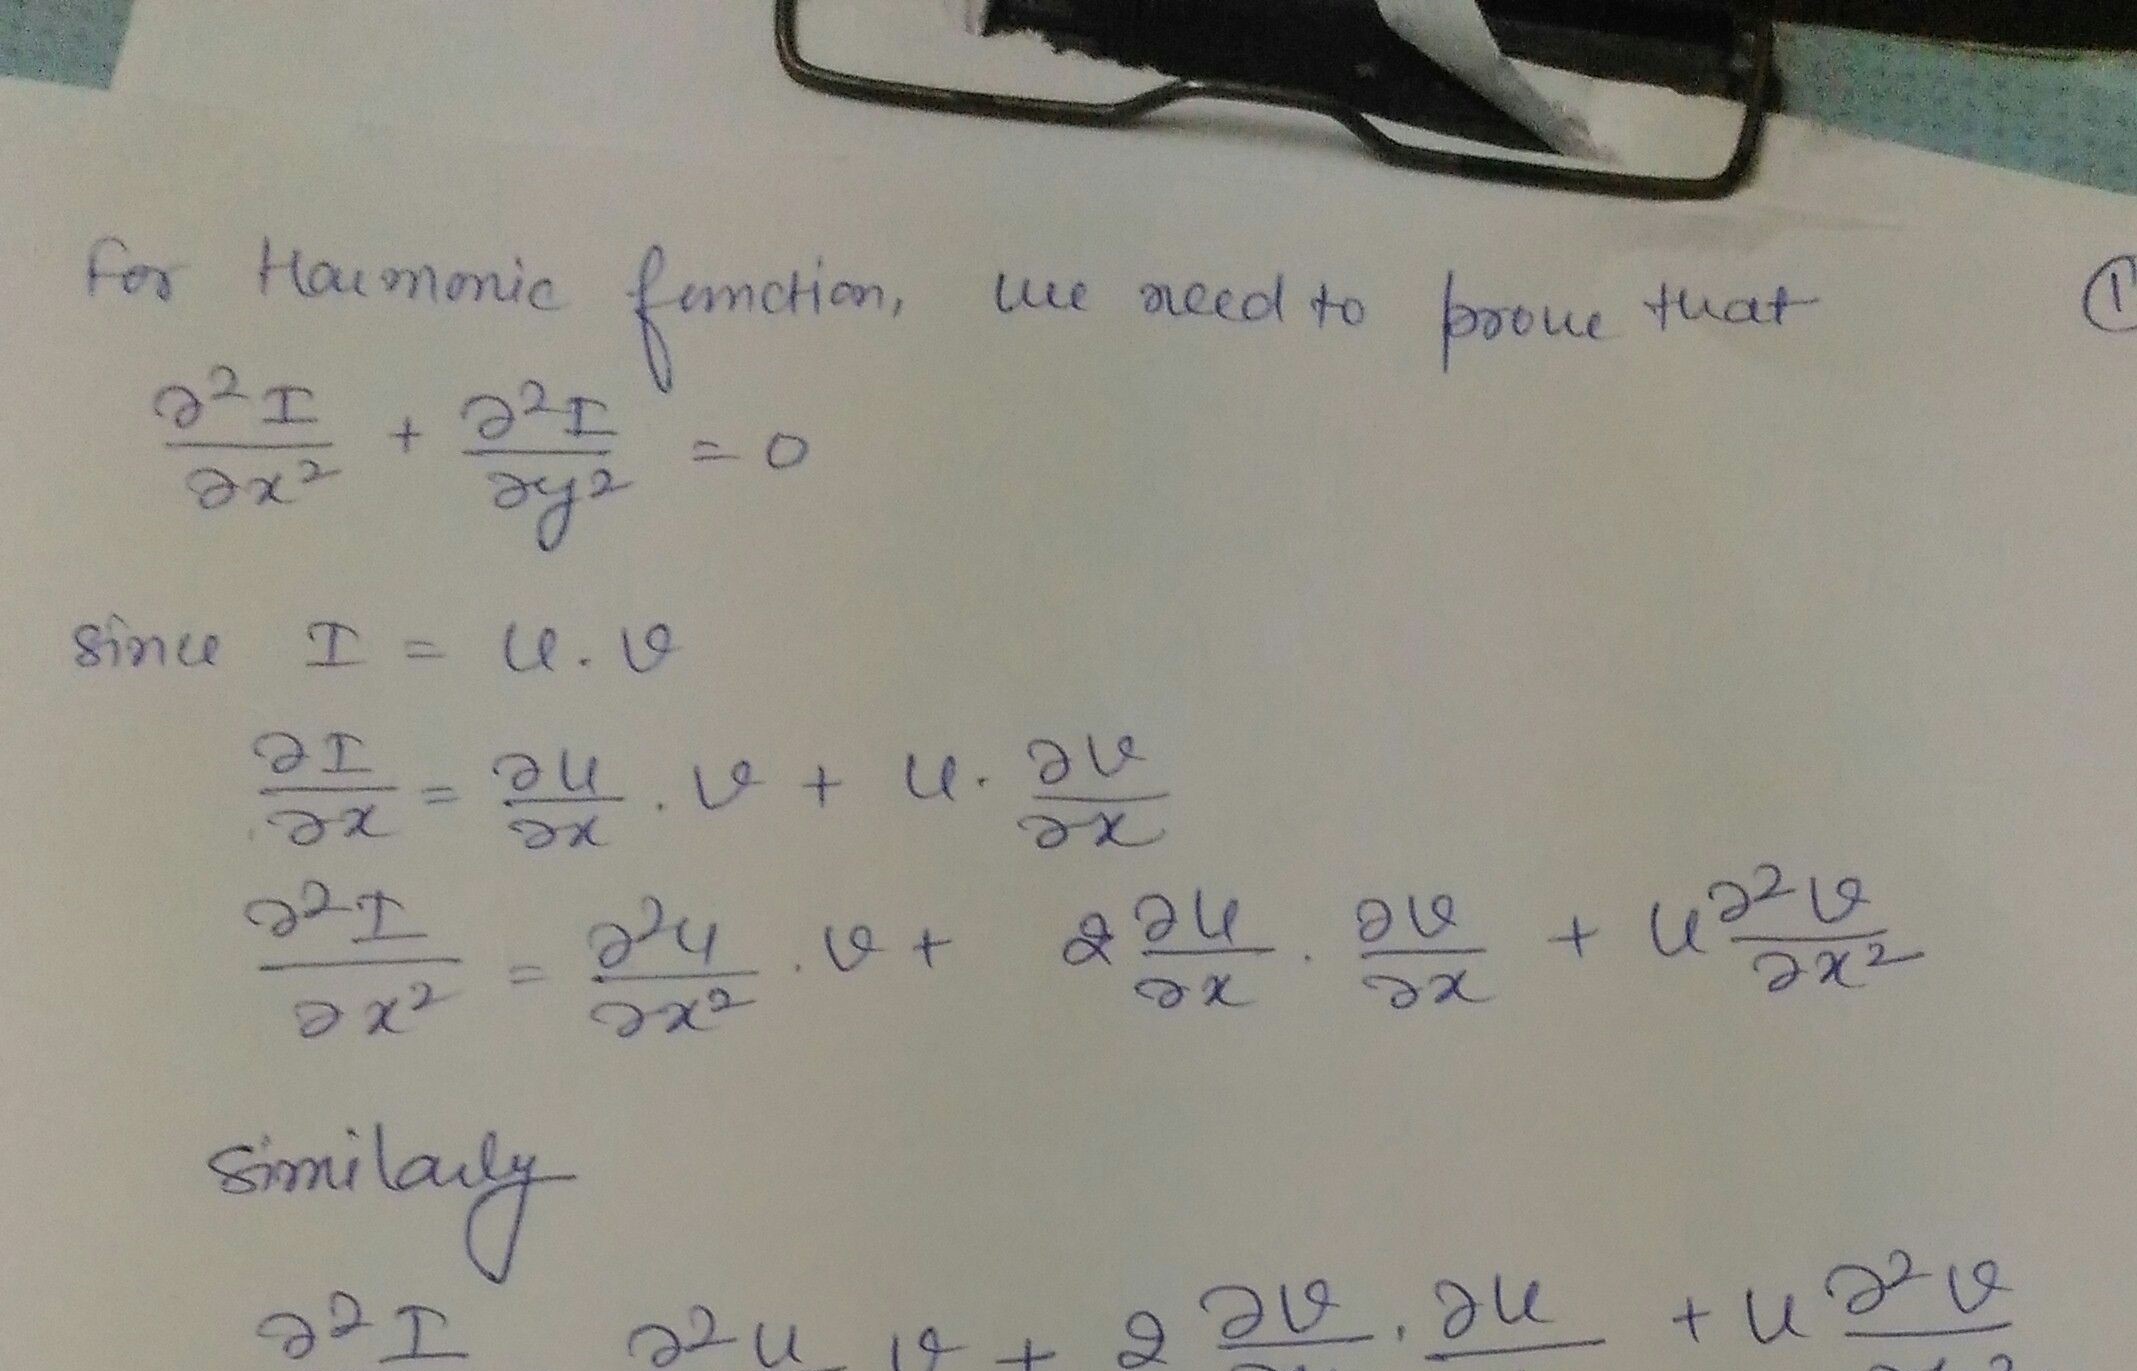 For Harmonic function, we need to prove that ①
∂²I/∂x² + ∂²I/∂y² = 0
since I = u.v
∂I/∂x = ∂u/∂x . v + u. ∂v/∂x
∂²I/∂x² = ∂²u/∂x² . v + 2 ∂u/∂x . ∂v/∂x + u ∂²v/∂x²
Similarly
∂²I ∂²u v + 2 ∂v . ∂u + u ∂²v